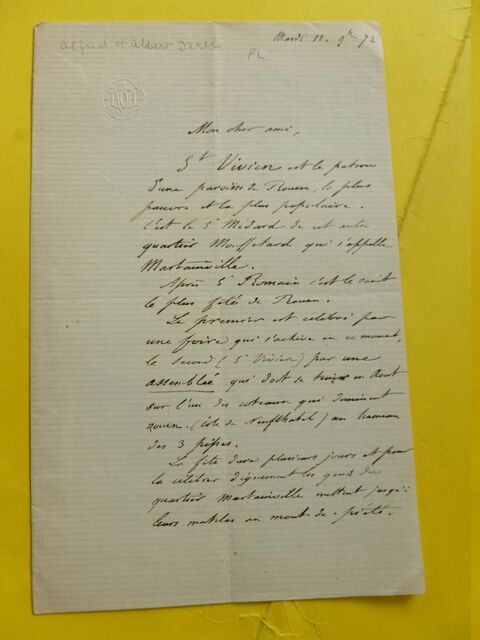 Alfred et Albert Darcel
Mardi 12. 9bre 72
PL
Mon cher ami,
St Vivien est le patron
d'une paroisse de Rouen, la plus
pauvre et la plus populaire.
C'est le St Médard de cet autre
quartier Mouffetard qui s'appelle
Martainville.
Après St Romain c'est le saint
le plus fêté de Rouen.
Le premier est célébré par
une foire qui s'achève en ce moment,
le second (St Vivien) par une
assemblée qui doit se tenir en Aout
sur l'un des coteaux qui dominent
rouen. (côte de Neufchatel) au hameau
des 3 pipes.
La fête dure plusieurs jours et pour
la célébrer dignement les gens du
quartier Martainville mettent jusqu'à
leurs matelas au mont-de-piété.